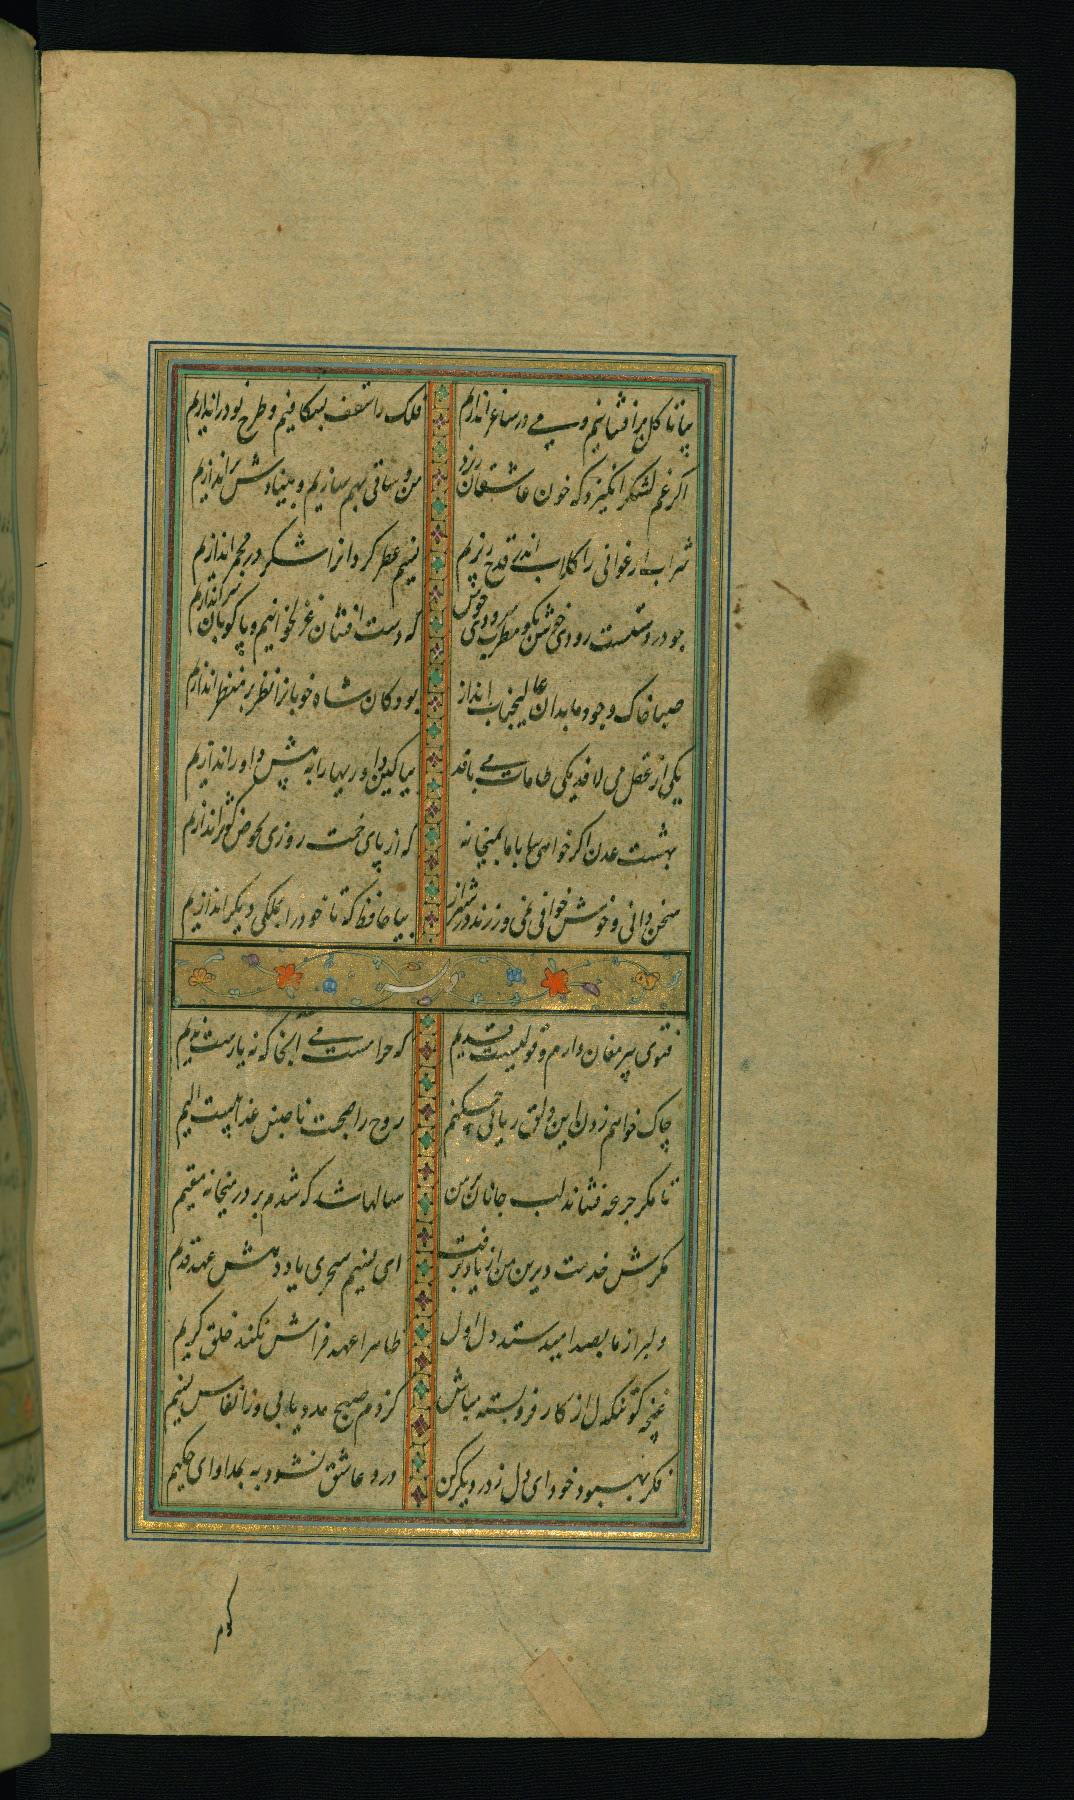 بیا تا گل برافشانیم و می در ساغر اندازیم فلک را سقف بشکافیم و طرح نو در اندازیم
اگر غم لشکر انگیزد که خون عاشقان ریزد من و ساقی بهم سازیم و بنیادش براندازیم
شراب ارغوانی را گلاب اندر قدح ریزیم نسیم عطر گردانرا شکر در مجمر اندازیم
چو در دستست رودی خوش بگو مطرب سرودی خوش که دست افشان غزل خوانیم و پا کوبان سر اندازیم
صبا خاک وجود ما بدان عالیجناب انداز بود کان شاه خوبانرا نظر بر منظر اندازیم
یکی از عقل می لافد یکی طامات می بافد بیا کین داوریها را به پیش داور اندازیم
بهشت عدن اگر خواهی بیا با ما بمیخانه که از پای خمت روزی بحوض کوثر اندازیم
سخن دانی و خوش خوانی نمی ورزند در شیراز بیا حافظ که تا خود را بملکی دیگر اندازیم
وله
فتوی پیر مغان دارم و قولیست قدیم که حرامست می آنجا که نه یارست ندیم
چاک خواهم زدن این دلق ریائی چکنم روح را صحبت ناجنس عذابیست الیم
تا مگر جرعه فشاند لب جانان بر من سالها شد که شدم بر در میخانه مقیم
مگرش خدمت دیرین من از یاد برفت ای نسیم سحری یاد دهش عهد قدیم
دلبر از ما بصد امید ستد دل اول ظاهرا عهد فرامش نکند خلق کریم
غنچه گو تنگدل از کار فروبسته مباش کز دم صبح مدد یابی و ز انفاس نسیم
فکر بهبود خود ای دل ز در دیگر کن درد عاشق نشود به بمداوای حکیم